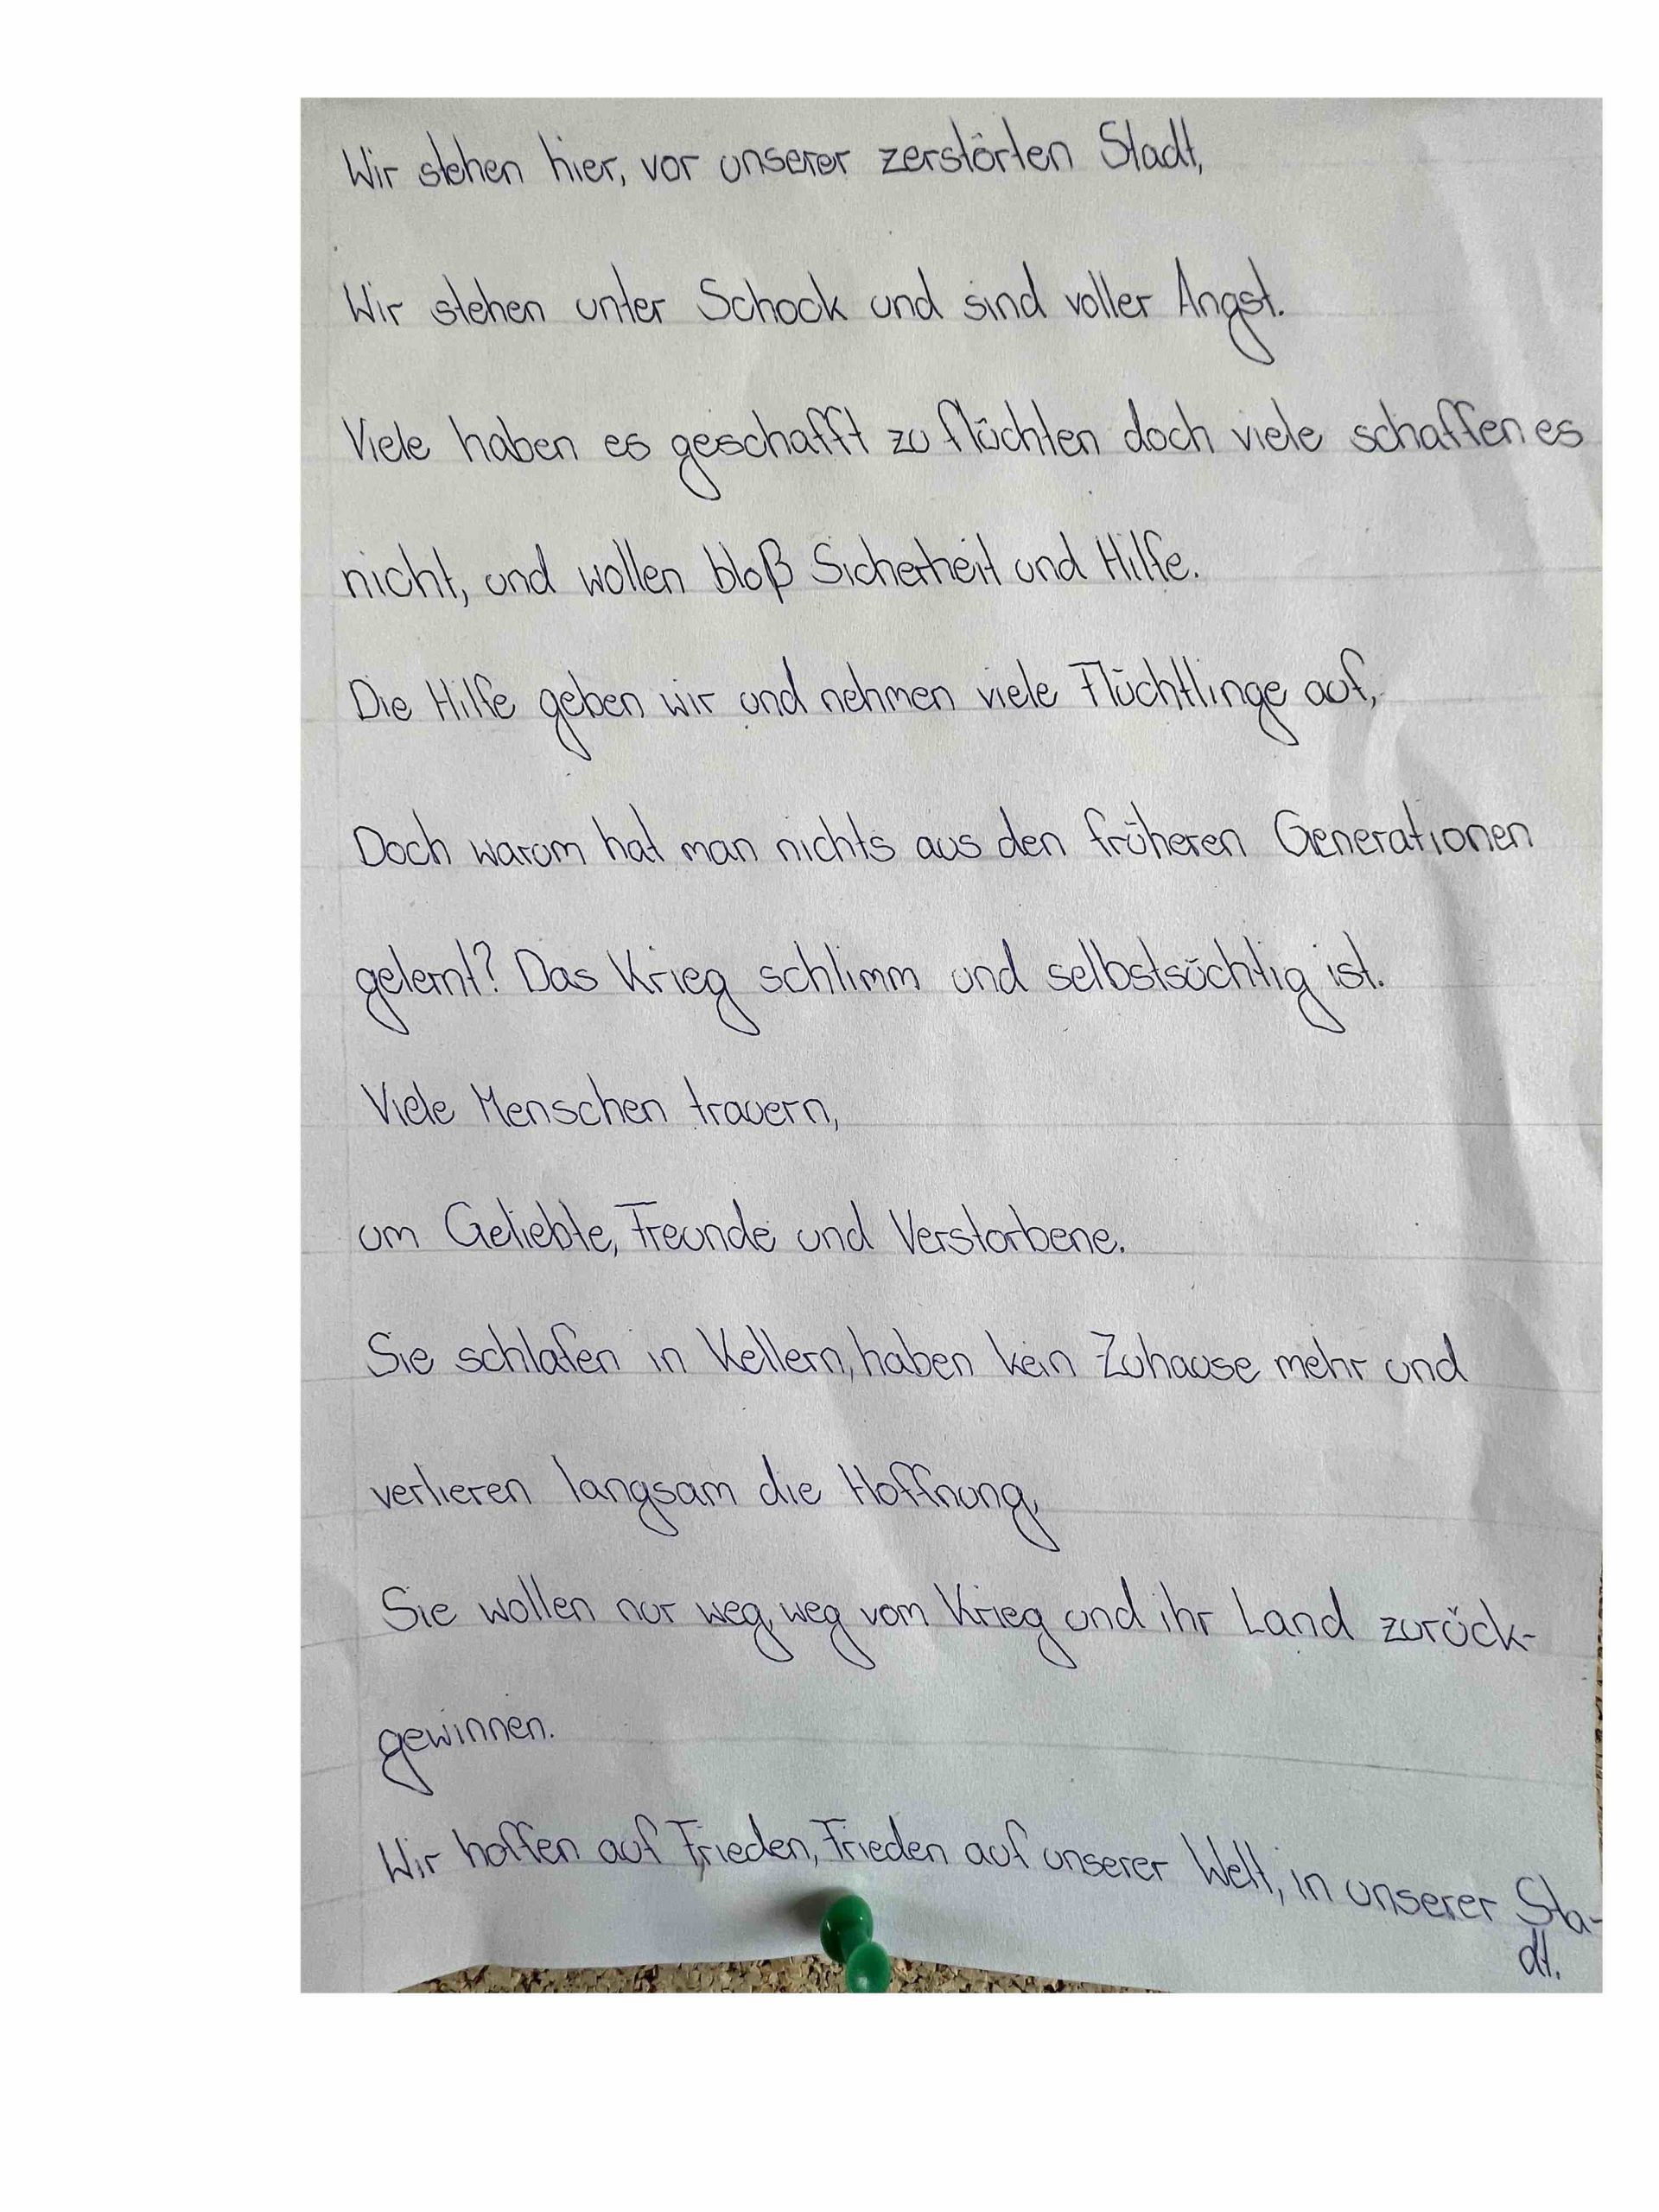 Wir stehen hier, vor unserer zerstörten Stadt,
Wir stehen unter Schock und sind voller Angst.
Viele haben es geschafft zu flüchten doch viele schaffen es
nicht, und wollen bloß Sicherheit und Hilfe.
Die Hilfe geben wir und nehmen viele Flüchtlinge auf,
Doch warum hat man nichts aus den früheren Generationen
gelernt? Das Krieg schlimm und selbstsüchtig ist.
Viele Menschen trauern,
um Geliebte, Freunde und Verstorbene.
Sie schlafen in Kellern, haben kein Zuhause mehr und
verlieren langsam die Hoffnung,
Sie wollen nur weg, weg vom Krieg und ihr Land zurück-
gewinnen.
Wir hoffen auf Frieden, Frieden auf unserer Welt, in unserer Sta-
dt.